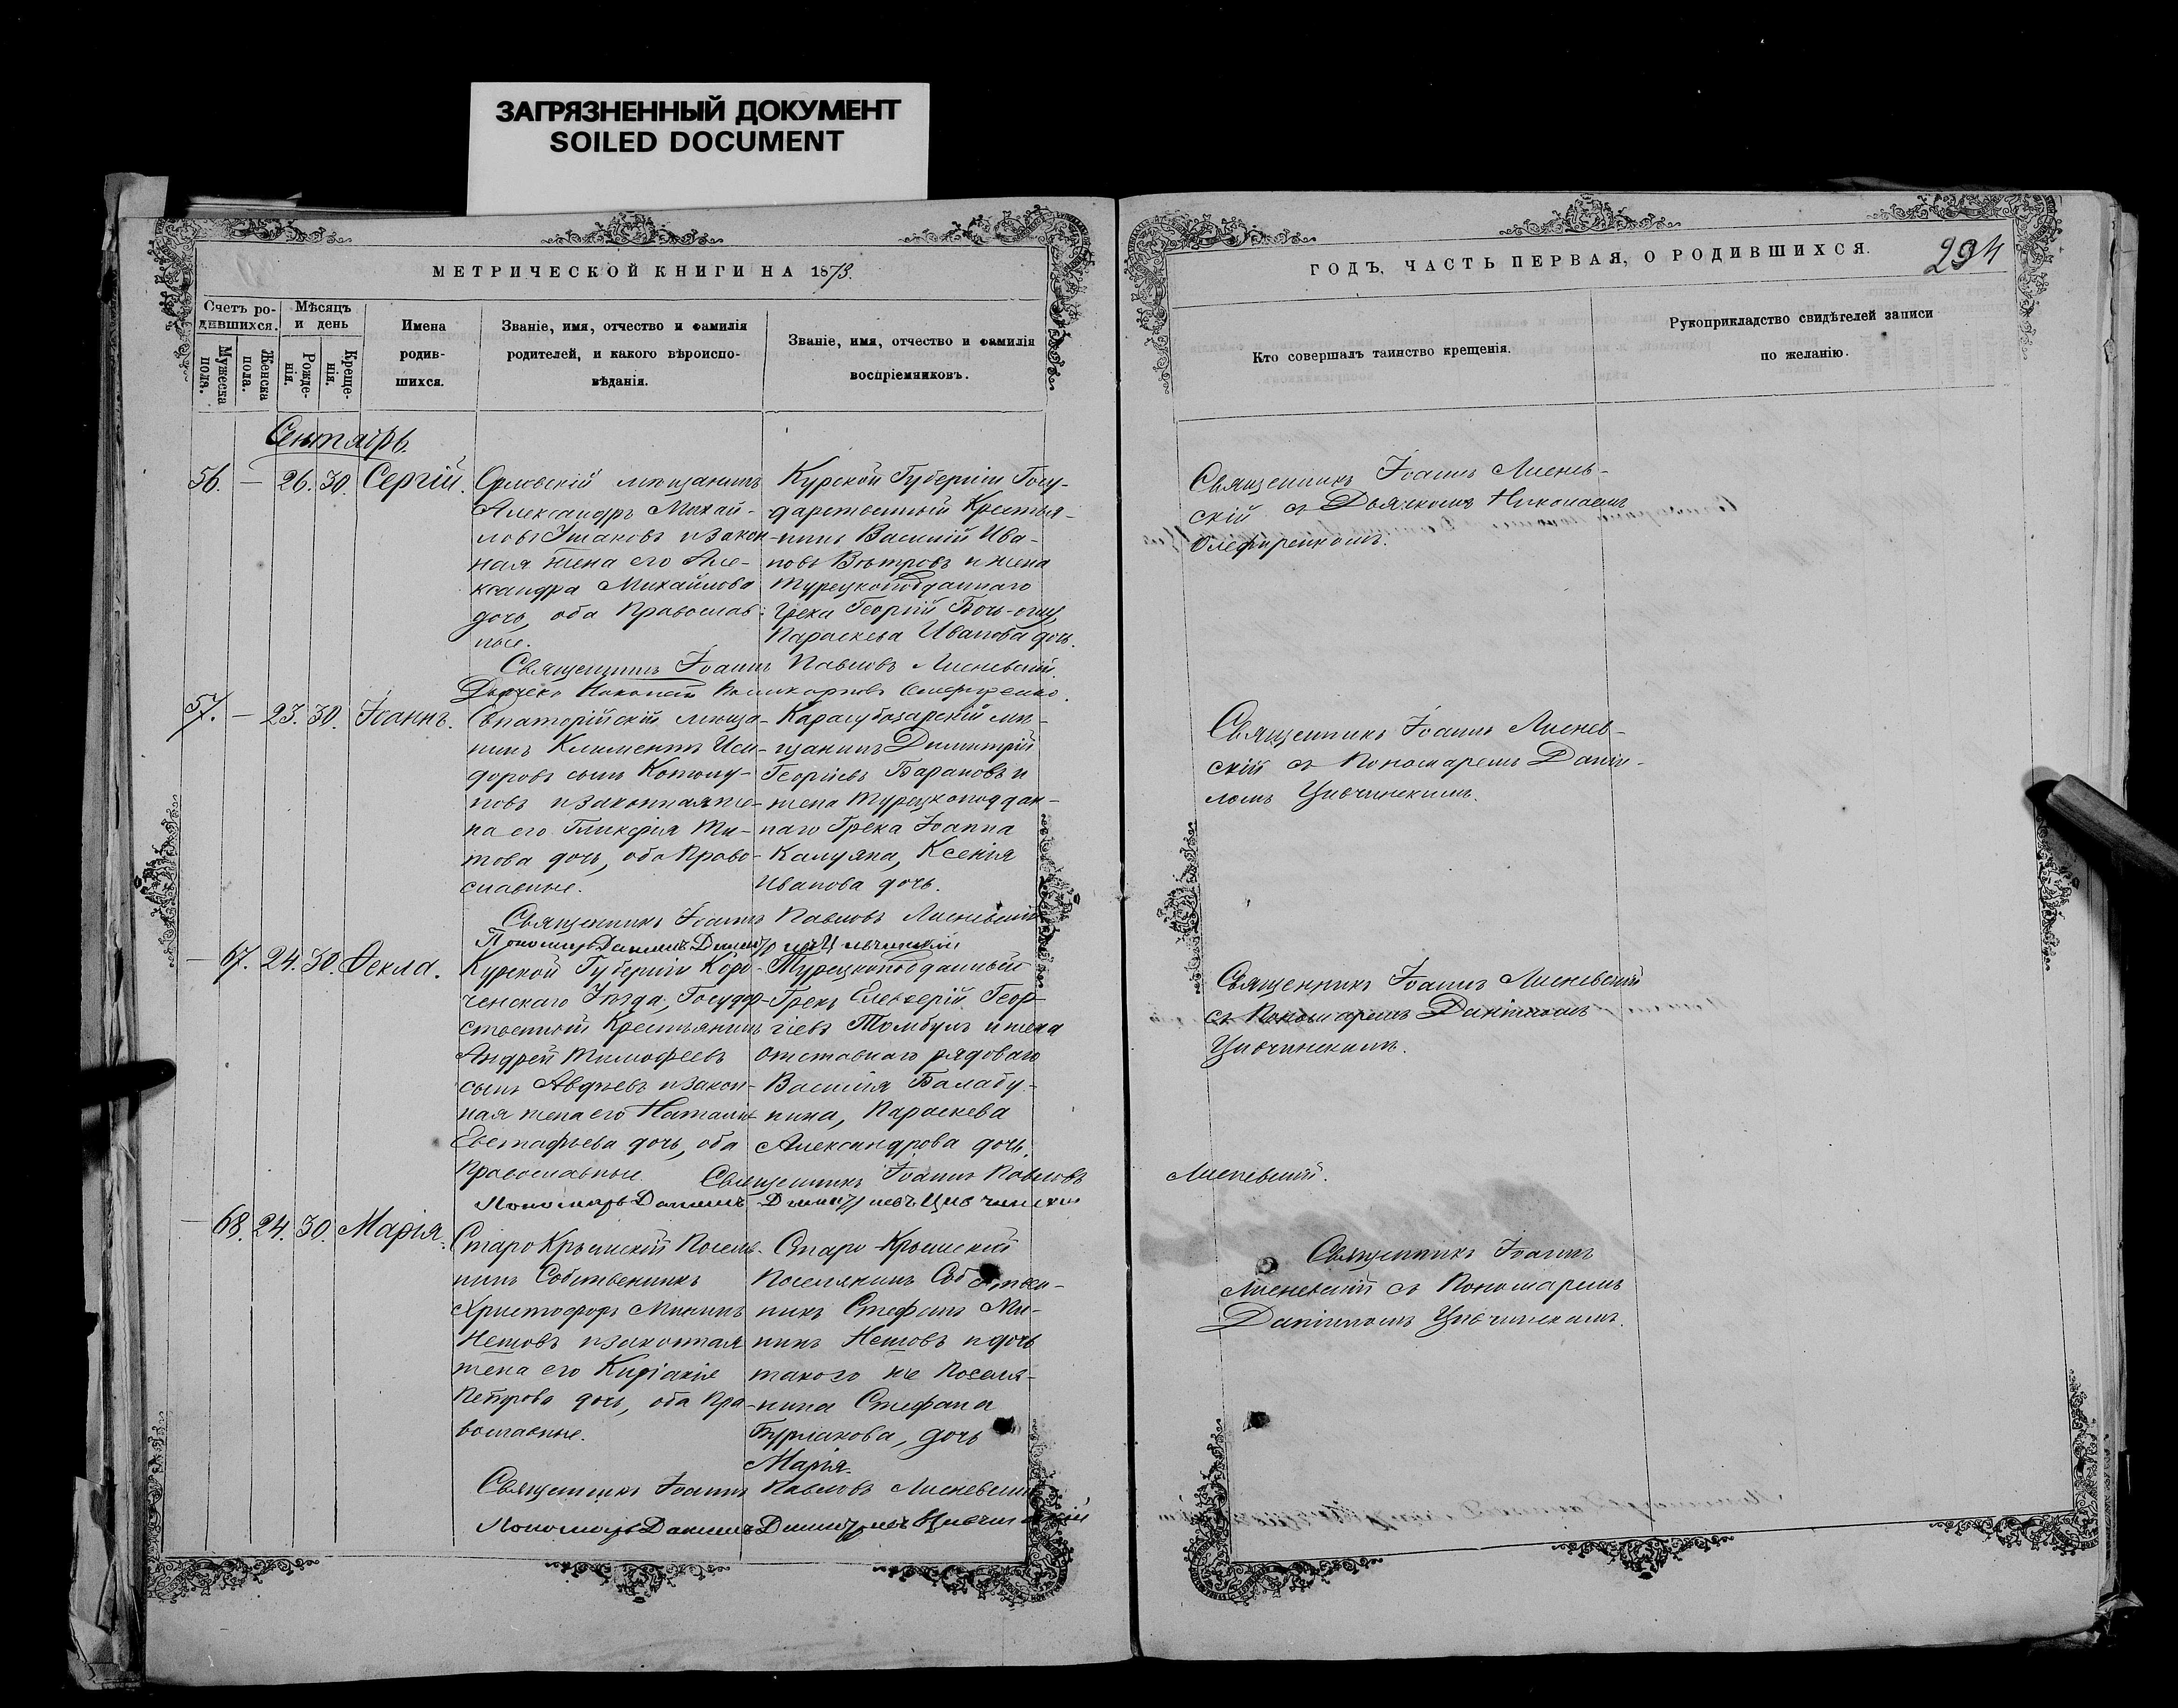 ЗАГРЯЗНЕННЫЙ ДОКУМЕНТ
SOILED DOCUMENT
МЕТРИЧЕСКОЙ КНИГИ НА 1873.
Счетъ ро-
дившихся.
Мужеска пола.
Женска пола.
Мѣсяцъ
и день
Рожде-
нія.
Креще-
нія.
Имена
родив-
шихся.
Званіе, имя, отчество и фамилія
родителей, и какого вѣроиспо-
вѣданія.
Званіе, имя, отчество и фамилія
воспріемниковъ.
Сентябрь.
56. — 26. 30. Сергій.
Орловскій мѣщанинъ
Александръ Михай-
ловъ Ушаковъ и закон-
ная жена его Але-
ксандра Михайлова
дочь, оба Православ-
ные.
Курской Губерніи Госу-
дарственный Крестья-
нинъ Василій Ива-
новъ Вѣтровъ и жена
Турецкоподданнаго
Грека Георгій
Параскева Иванова дочь.
Священникъ Іоаннъ Павловъ Лисневскій.
Дьячекъ Николай Поликарповъ Олефиренко.
57. — 23. 30. Іоаннъ.
Евпаторійскій мѣща-
нинъ Климентъ Иси-
доровъ сынъ
и законная же-
на его Гликерія Ти-
това дочь, оба Право-
славные.
Карасубазарскій мѣ-
щанинъ Димитрій
Георгіевъ Барановъ и
жена Турецкоподдан-
наго Грека Іоанна
Калуяна, Ксенія
Иванова дочь.
Священникъ Іоаннъ Павловъ Лисневскій
Пономарь Даніилъ Цивчинскій
— 67. 24. 30. Ѳекла.
Курской Губерніи Коро-
ченскаго Уѣзда, Государ-
ственный Крестьянинъ
Андрей Тимофеевъ
сынъ Авдѣевъ и закон-
ная жена его Наталія
Евстафьева дочь, оба
Православные.
Турецкоподданный
Грекъ Елевѳерій Геор-
гіевъ Томбулъ и жена
отставнаго рядоваго
Василія Балабу-
нина, Параскева
Александрова дочь.
Священникъ Іоаннъ Павловъ
Пономарь Даніилъ Цивчинскій
— 68. 24. 30. Марія.
Старо Крымскій Поселя-
нинъ Собственникъ
Христофоръ Мининъ
Нетовъ и законная
жена его Киріакія
Петрова дочь, оба Пра-
вославные.
Старо-Крымскій
Поселянинъ Собствен-
никъ Стефанъ Ми-
нинъ Нетовъ и дочь
такого же Поселя-
нина Стефана
Бурлакова, дочь
Марія.
Священникъ Іоаннъ Павловъ Лисневскій
Пономарь Даніилъ Цивчинскій
ГОДЪ, ЧАСТЬ ПЕРВАЯ, О РОДИВШИХСЯ.
294
Кто совершалъ таинство крещенія.
Рукоприкладство свидѣтелей записи
по желанію.
Священникъ Іоаннъ Лиснев-
скій съ Дьячкомъ Николаемъ
Олефиренкомъ.
Священникъ Іоаннъ Лиснев-
скій съ Пономаремъ Даніи-
ломъ Цивчинскимъ.
Священникъ Іоаннъ Лисневскій
съ Пономаремъ Даніиломъ
Цивчинскимъ.
Лисневскій.
Священникъ Іоаннъ
Лисневскій съ Пономаремъ
Даніиломъ Цивчинскимъ.